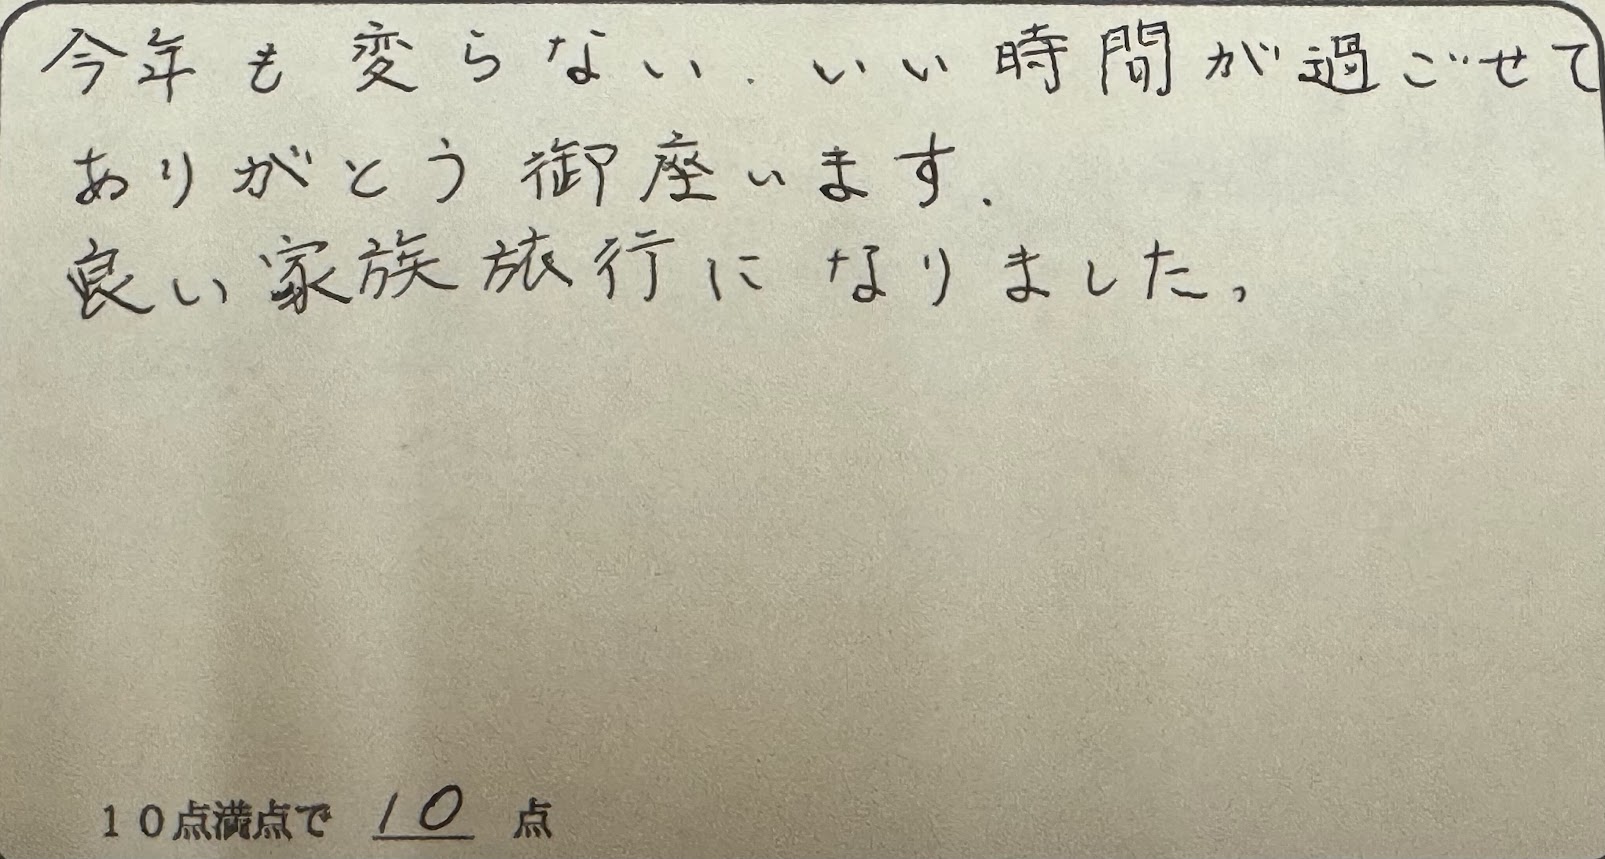 今年も変らない、いい時間が過ごせて
ありがとう御座います.
良い家族旅行になりました。
10点満点で 10 点